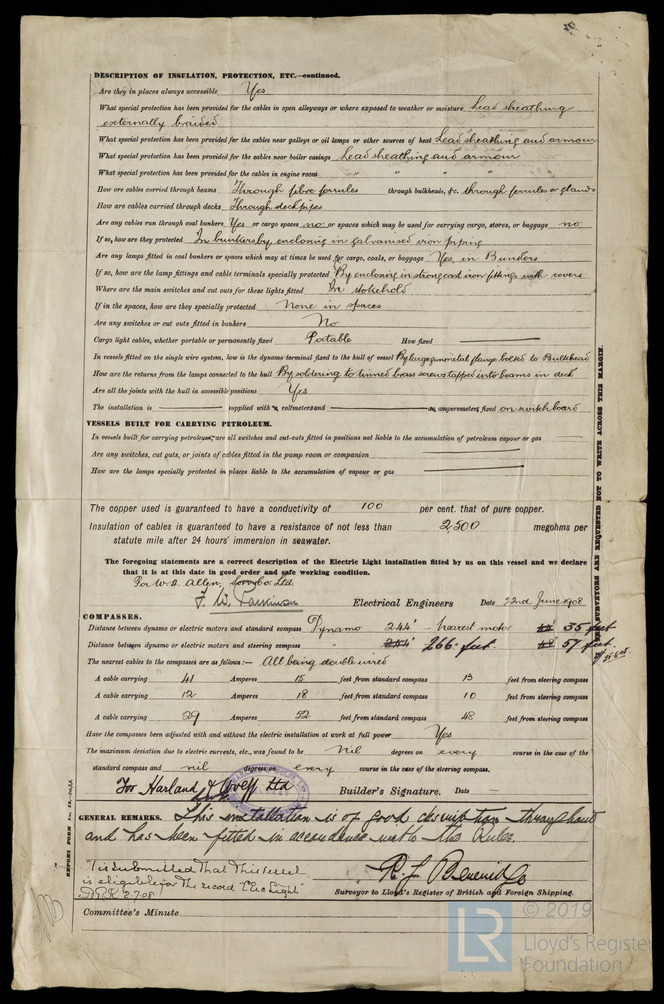 DESCRIPTION OF INSULATION, PROTECTION, ETC.—continued.
Are they in places always accessible Yes
What special protection has been provided for the cables in open alleyways or where exposed to weather or moisture Lead sheathing
externally braided
What special protection has been provided for the cables near galleys or oil lamps or other sources of heat Lead sheathing and armour
What special protection has been provided for the cables near boiler casings Lead sheathing and armour
What special protection has been provided for the cables in engine room " " " "
How are cables carried through beams Through fibre ferrules through bulkheads, &c. through ferrules or glands
How are cables carried through decks Through deck pipes
Are any cables run through coal bunkers Yes or cargo spaces no or spaces which may be used for carrying cargo, stores, or baggage no
If so, how are they protected In bunkers by enclosing in galvanised iron piping
Are any lamps fitted in coal bunkers or spaces which may at times be used for cargo, coals, or baggage Yes, in Bunkers
If so, how are the lamp fittings and cable terminals specially protected By enclosing in strong cast iron fittings with covers
Where are the main switches and cut outs for these lights fitted In stokehold
If in the spaces, how are they specially protected None in spaces
Are any switches or cut outs fitted in bunkers No
Cargo light cables, whether portable or permanently fixed Portable How fixed
In vessels fitted on the single wire system, how is the dynamo terminal fixed to the hull of vessel By large gunmetal flange bolted to Bulkhead
How are the returns from the lamps connected to the hull By soldering to tinned brass screws tapped into beams in deck
Are all the joints with the hull in accessible positions Yes
The installation is supplied with voltmeters and amperemeters fixed on switchboard
VESSELS BUILT FOR CARRYING PETROLEUM.
In vessels built for carrying petroleum, are all switches and cut-outs fitted in positions not liable to the accumulation of petroleum vapour or gas
Are any switches, cut guts, or joints of cables fitted in the pump room or companion
How are the lamps specially protected in places liable to the accumulation of vapour or gas
The copper used is guaranteed to have a conductivity of 100 per cent. that of pure copper.
Insulation of cables is guaranteed to have a resistance of not less than 2500 megohms per
statute mile after 24 hours' immersion in seawater.
The foregoing statements are a correct description of the Electric Light installation fitted by us on this vessel and we declare
that it is at this date in good order and safe working condition.
For W. H. Allen, Son & Co. Ltd.
F. W. Parkinson Electrical Engineers Date 22nd June 1908
COMPASSES.
Distance between dynamo or electric motors and standard compass Dynamo 244' — nearest motor 35 feet
Distance between dynamo or electric motors and steering compass 244' 266 feet 57 feet
The nearest cables to the compasses are as follows:— All being double wired
A cable carrying 41 Amperes 15 feet from standard compass 13 feet from steering compass
A cable carrying 12 Amperes 18 feet from standard compass 10 feet from steering compass
A cable carrying 29 Amperes 52 feet from standard compass 48 feet from steering compass
Have the compasses been adjusted with and without the electric installation at work at full power Yes
The maximum deviation due to electric currents, etc., was found to be nil degrees on every course in the case of the
standard compass and nil degrees on every course in the case of the steering compass.
For Harland & Wolff Ltd Builder's Signature. Date
GENERAL REMARKS. This installation is of good description throughout
and has been fitted in accordance with the Rules.
It is submitted that this vessel
is eligible for the record "Elec Light"
Surveyor to Lloyd's Register of British and Foreign Shipping.
Committee's Minute
THE SURVEYORS ARE REQUESTED NOT TO WRITE ACROSS THIS MARGIN.
© 2019
LR
Lloyd's Register
Foundation